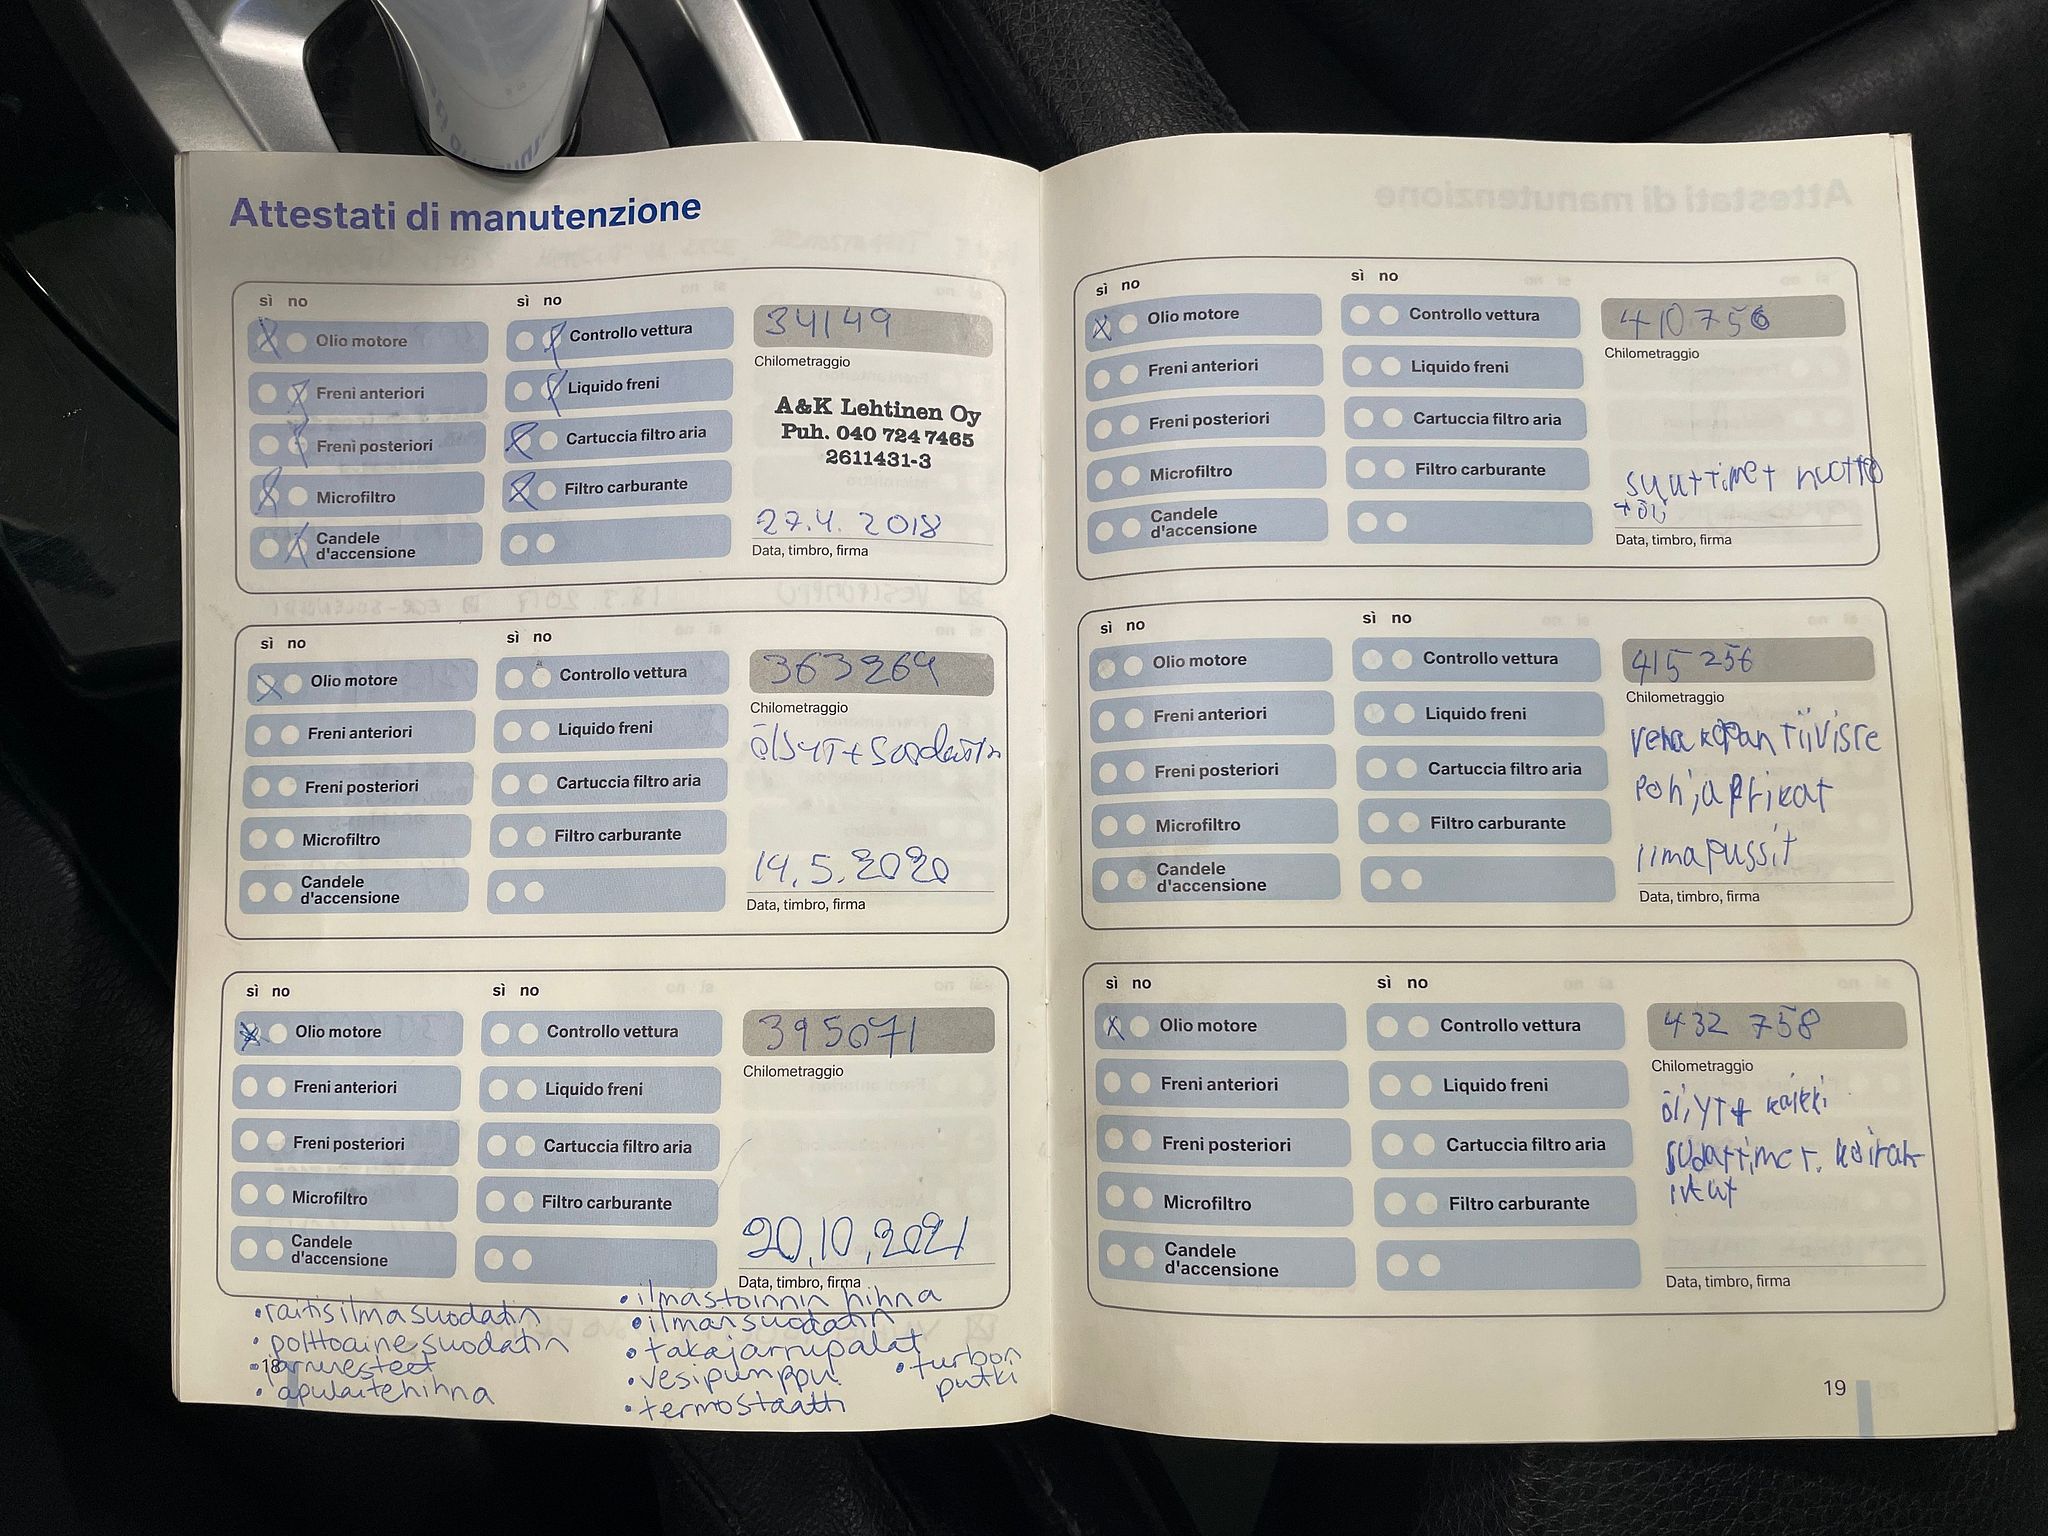 Attestati di manutenzione
sì no
sì no
Olio motore
Freni anteriori
Freni posteriori
Microfiltro
Candele
d'accensione
Controllo vettura
Liquido freni
Cartuccia filtro aria
Filtro carburante
34149
Chilometraggio
A&K Lehtinen Oy
Puh. 040 724 7465
2611431-3
27.4. 2018
Data, timbro, firma
sì no
sì no
Olio motore
Freni anteriori
Freni posteriori
Microfiltro
Candele
d'accensione
Controllo vettura
Liquido freni
Cartuccia filtro aria
Filtro carburante
363269
Chilometraggio
öljyt + suodatin
14.5.2020
Data, timbro, firma
sì no
sì no
Olio motore
Freni anteriori
Freni posteriori
Microfiltro
Candele
d'accensione
Controllo vettura
Liquido freni
Cartuccia filtro aria
Filtro carburante
395071
Chilometraggio
20.10.2021
Data, timbro, firma
• raitisilmasuodatin
• polttoainesuodatin
• jarrunesteet
• apulaitehihna
• ilmastoinnin hihna
• ilmansuodatin
• takajarrupalat
• vesipumppu
• termostaatti
• turbon
putki
18
sì no
sì no
Olio motore
Freni anteriori
Freni posteriori
Microfiltro
Candele
d'accensione
Controllo vettura
Liquido freni
Cartuccia filtro aria
Filtro carburante
410756
Chilometraggio
suuttimet
Data, timbro, firma
sì no
sì no
Olio motore
Freni anteriori
Freni posteriori
Microfiltro
Candele
d'accensione
Controllo vettura
Liquido freni
Cartuccia filtro aria
Filtro carburante
415 256
Chilometraggio
tiiviste
ilmapussit
Data, timbro, firma
sì no
sì no
Olio motore
Freni anteriori
Freni posteriori
Microfiltro
Candele
d'accensione
Controllo vettura
Liquido freni
Cartuccia filtro aria
Filtro carburante
432 758
Chilometraggio
öljyt + kaikki
Data, timbro, firma
19